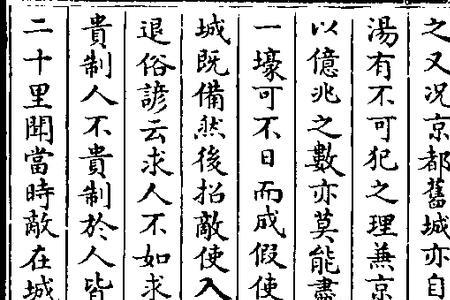 之又况京都舊城亦自
湯有不可犯之理兼京
以億兆之數亦莫能盡
一壕可不日而成假使
城既備然後招敵使入
退俗諺云求人不如求
貴制人不貴制於人皆
二十里聞當時敵在城